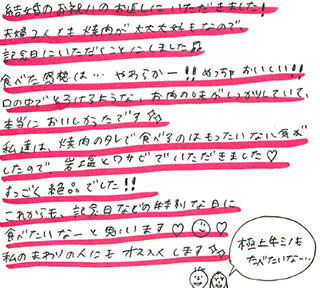 結婚のお祝いのお返しにいただきました!
夫婦2人とも焼肉が大大大好きなので、
記念日にいただくことにしました♫
食べた感想は… やわらかー!!めっちゃおいしい!!
口の中でとろけるような、お肉の味がしっかりしていて、
本当においしかったです☆
私達は、焼肉のタレで食べるのはもったいない気が
したので、岩塩とワサビでいただきました♡
すっごく絶品でした!!
これからも、記念日などの特別な日に
食べたいなーと思います♡☺♡
私のまわりの人にもオススメします☆
極上牛ミノも
たべたいな…